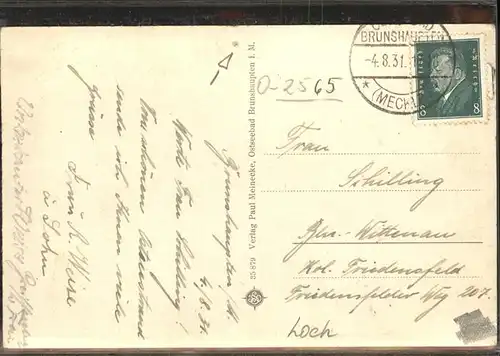 OSTSEEBAD
BRUNSHAUPTEN
-4.8.31.
* (MECKL
8
8
0-2565
Frau
Schilling
Bln-Wittenau
Kol. Friedensfeld
Friedensfelder Weg 207.
Loch
55 879 Verlag Paul Meinecke, Ostseebad Brunshaupten i. M.
Brunshaupten, d.
4./8.31.
Werte Frau Schilling!
Vom schönen Ostseestrand
sende ich Ihnen viele
Grüsse
Frau A. Weise
u. Sohn